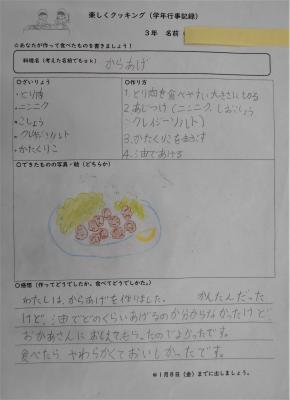 楽しくクッキング（学年行事記録）
３年 名前
☆あなたが作って食べたものを書きましょう！
料理名（考えた名前でもok） からあげ
○ざいりょう
・とり肉
・ニンニク
・こしょう
・クレイジーソルト
・かたくりこ
○作り方
1.とり肉を食べやすい大きさに切る
2.あじつけ（ニンニク、しおこしょう
クレイジーソルト）
3.かたくりこをまぶす
4.油であげる
○できたものの写真・絵（どちらか）
○感想（作ってどうでしたか。食べてどうでしたか。）
わたしは、からあげを作りました。 かんたんだった
けど、油でどのくらいあげるのか分からなかったけど
おかあさんにおしえてもらったのでよかったです。
食べたらやわらかくておいしかったです。
※１月８日（金）までに出しましょう。